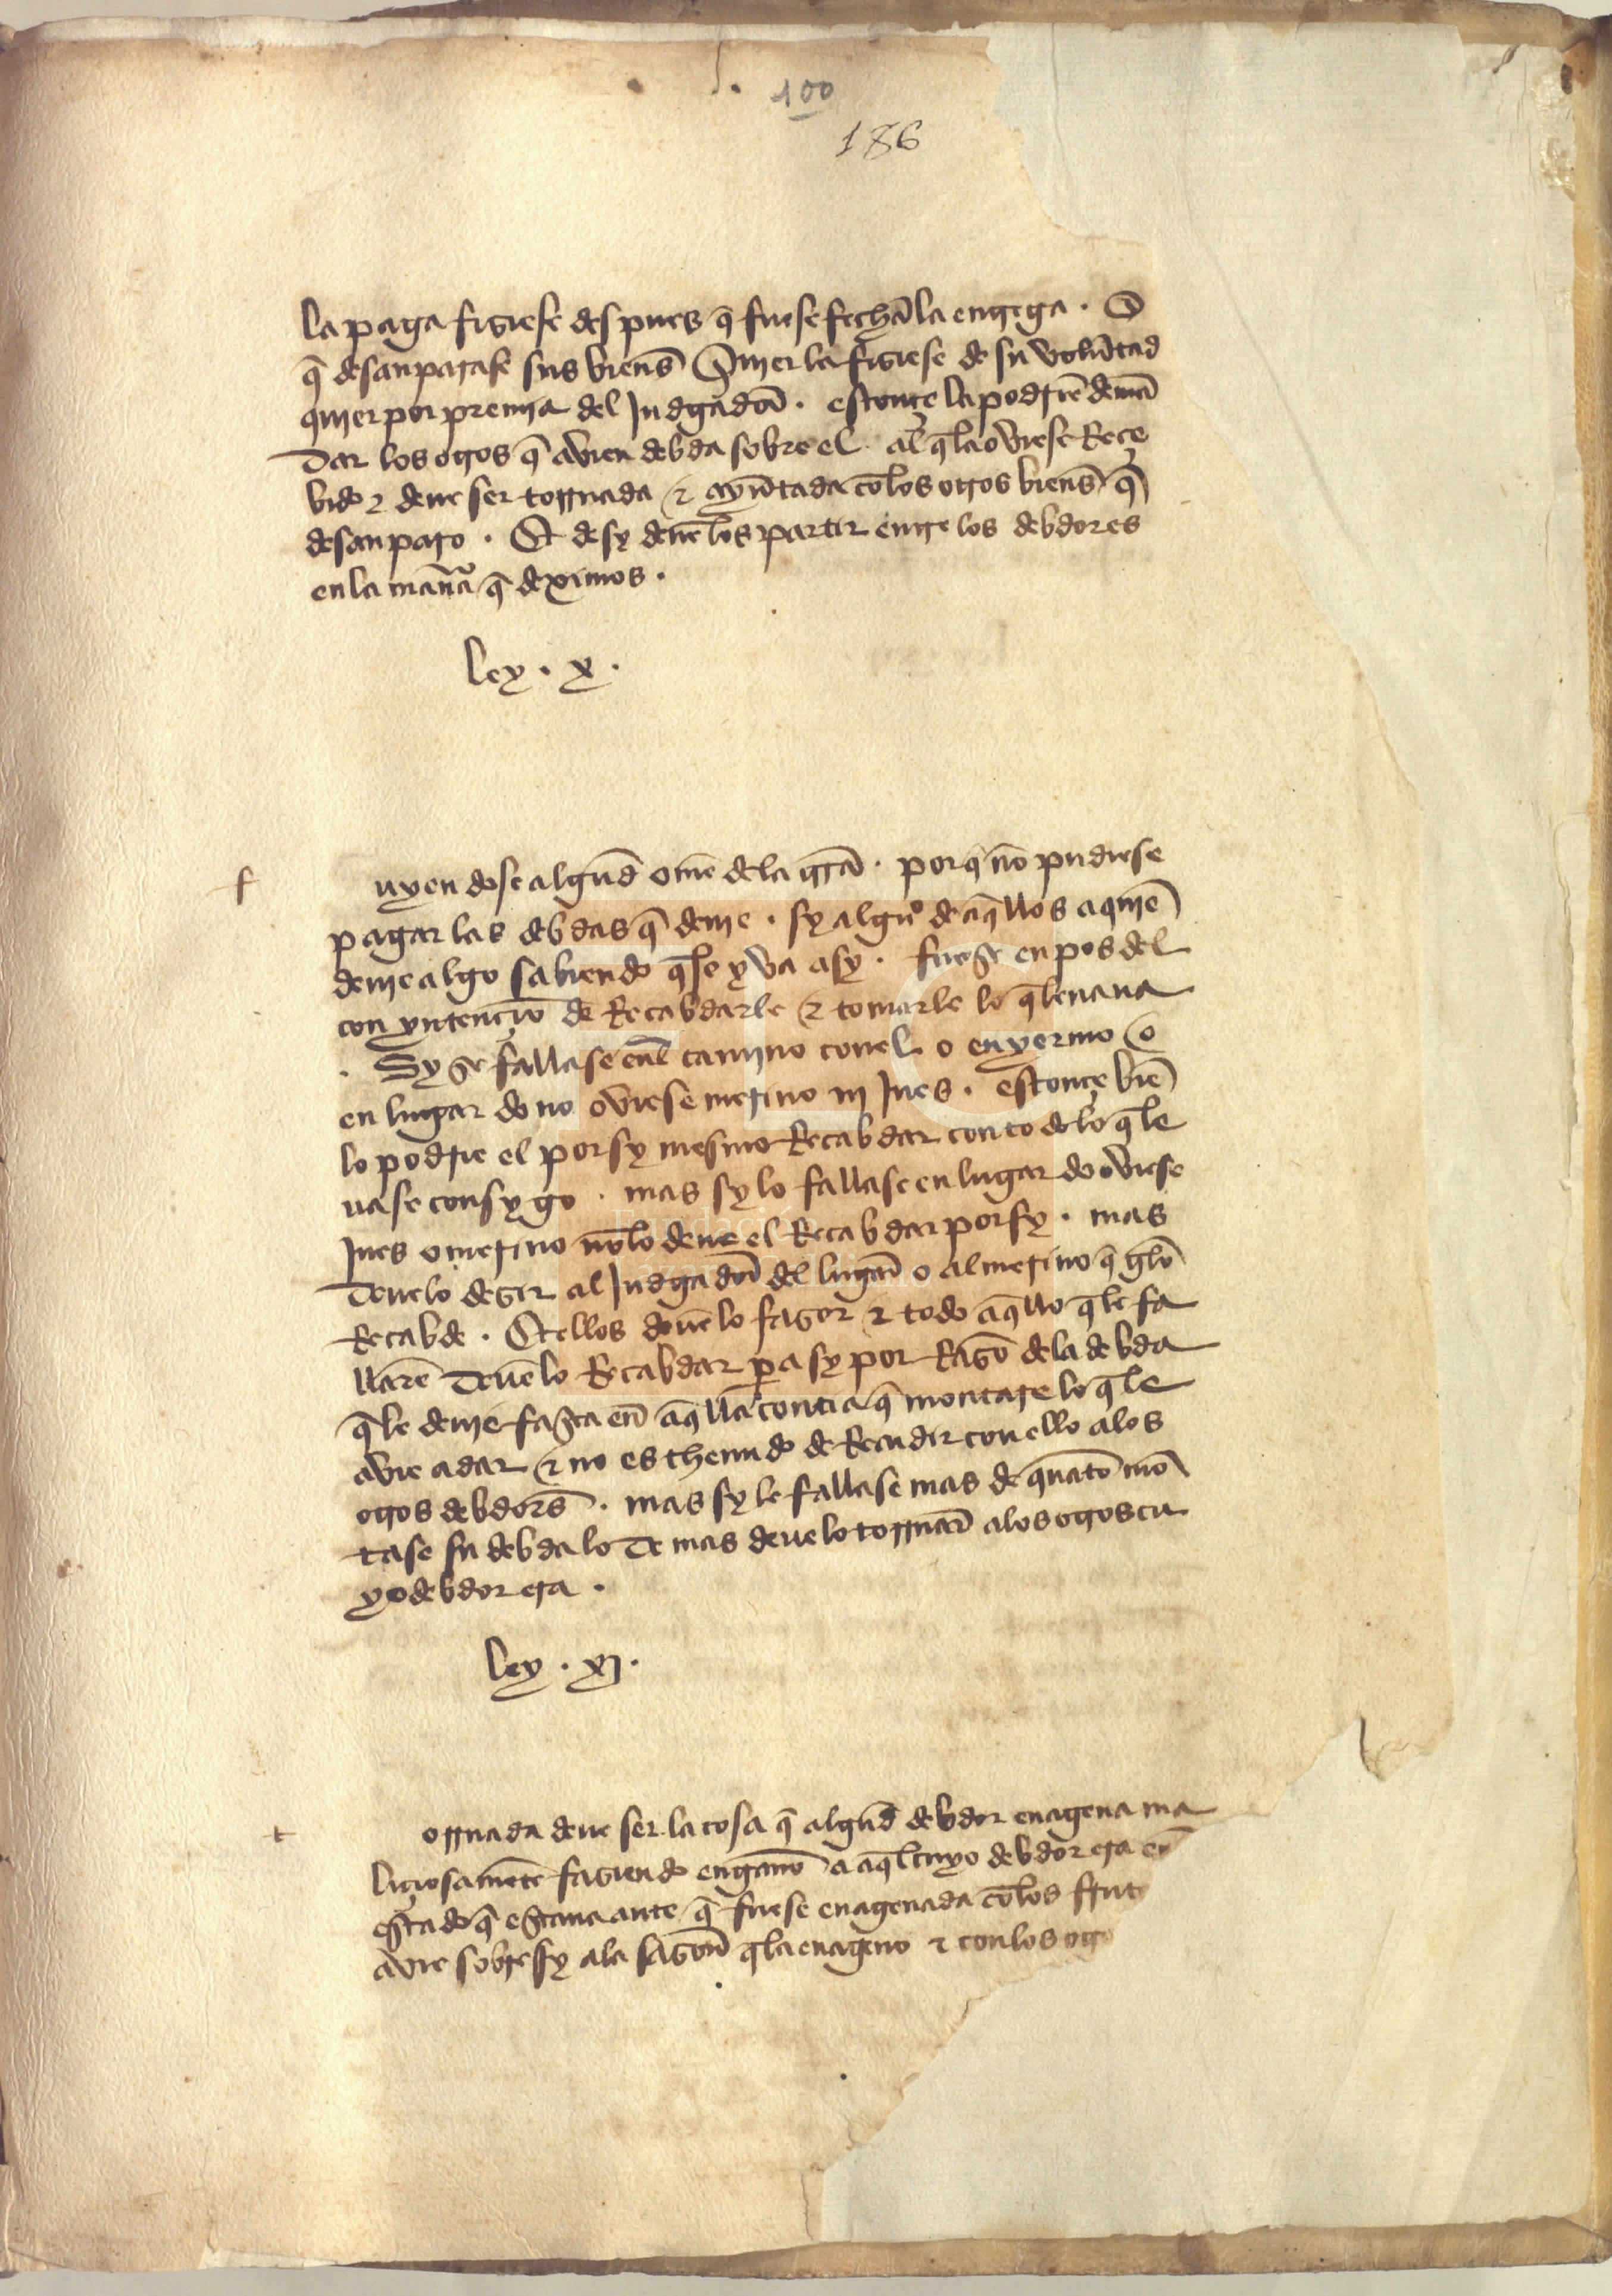 100
186
la paga fiziese despues q̄ fuese fechā la entrega . O
q̄ desanparase sus bienes̄ Quier la fiziese de su volūtad
quier por premia del Judgadōr . estonçe la podriē demā
dar los otros q̄ avien debda sobre el al q̄ la oviese Reçe
bido ⁊ deue ser tornada ⁊ ayūtada cō los otros bienes̄ q̄
desanparo . Et desy deuē los partir entre los debdores
en la manʳa q̄ deximos .
Ley . x .
f
uyendose algūd ome de la trrā . porq̄ nō pudiese
pagar las debdas q̄ deuie . sy algūº de aq̄llos a quiē
deuie algo sabiendo q̄ se yva asy . fuese en pos del
con yntençiō de Recabdarle ⁊ tomarle lo q̄ leuaua
. Sy se fallase enl̄ camino con el o en yermo o
en lugar do no oviese merino ni Jues . estonçe biē
lo podrie el por sy mesmo Recabdar con todo lo q̄ le
uase consygo . mas sy lo fallase en lugar do oviese
Jues o merino nō lo deue el Recabdar por sy . mas
deuelo dezir al Judgadōr del lugār o al merino q̄ gelō
Recabde . Et ellos deuēlo fazer ⁊ todo aq̄llo q̄ le fa
llarē deuēlo Recabdar pa sy por Razō de la debda
q̄ le deuie fasta en̄ aq̄lla contia q̄ montare lo q̄ le
avie a dar ⁊ no es thenudo de Recudir con ello a los
otros debdores̄ . mas sy le fallase mas de quātō mō
tase su debda lo de mas deuelo tornār a los otros cu
yo debdor era .
Ley . xj .
t
ornada deue ser la cosa q̄ algūd debdor enagena ma
liçiosamēte faziendo engaño a aq̄l cuyo debdor era en̄
estado q̄ estaua ante q̄ fuese enagenada cō los frut
avie sobre sy a la sazon̄ q̄ la enageno ⁊ con los otro